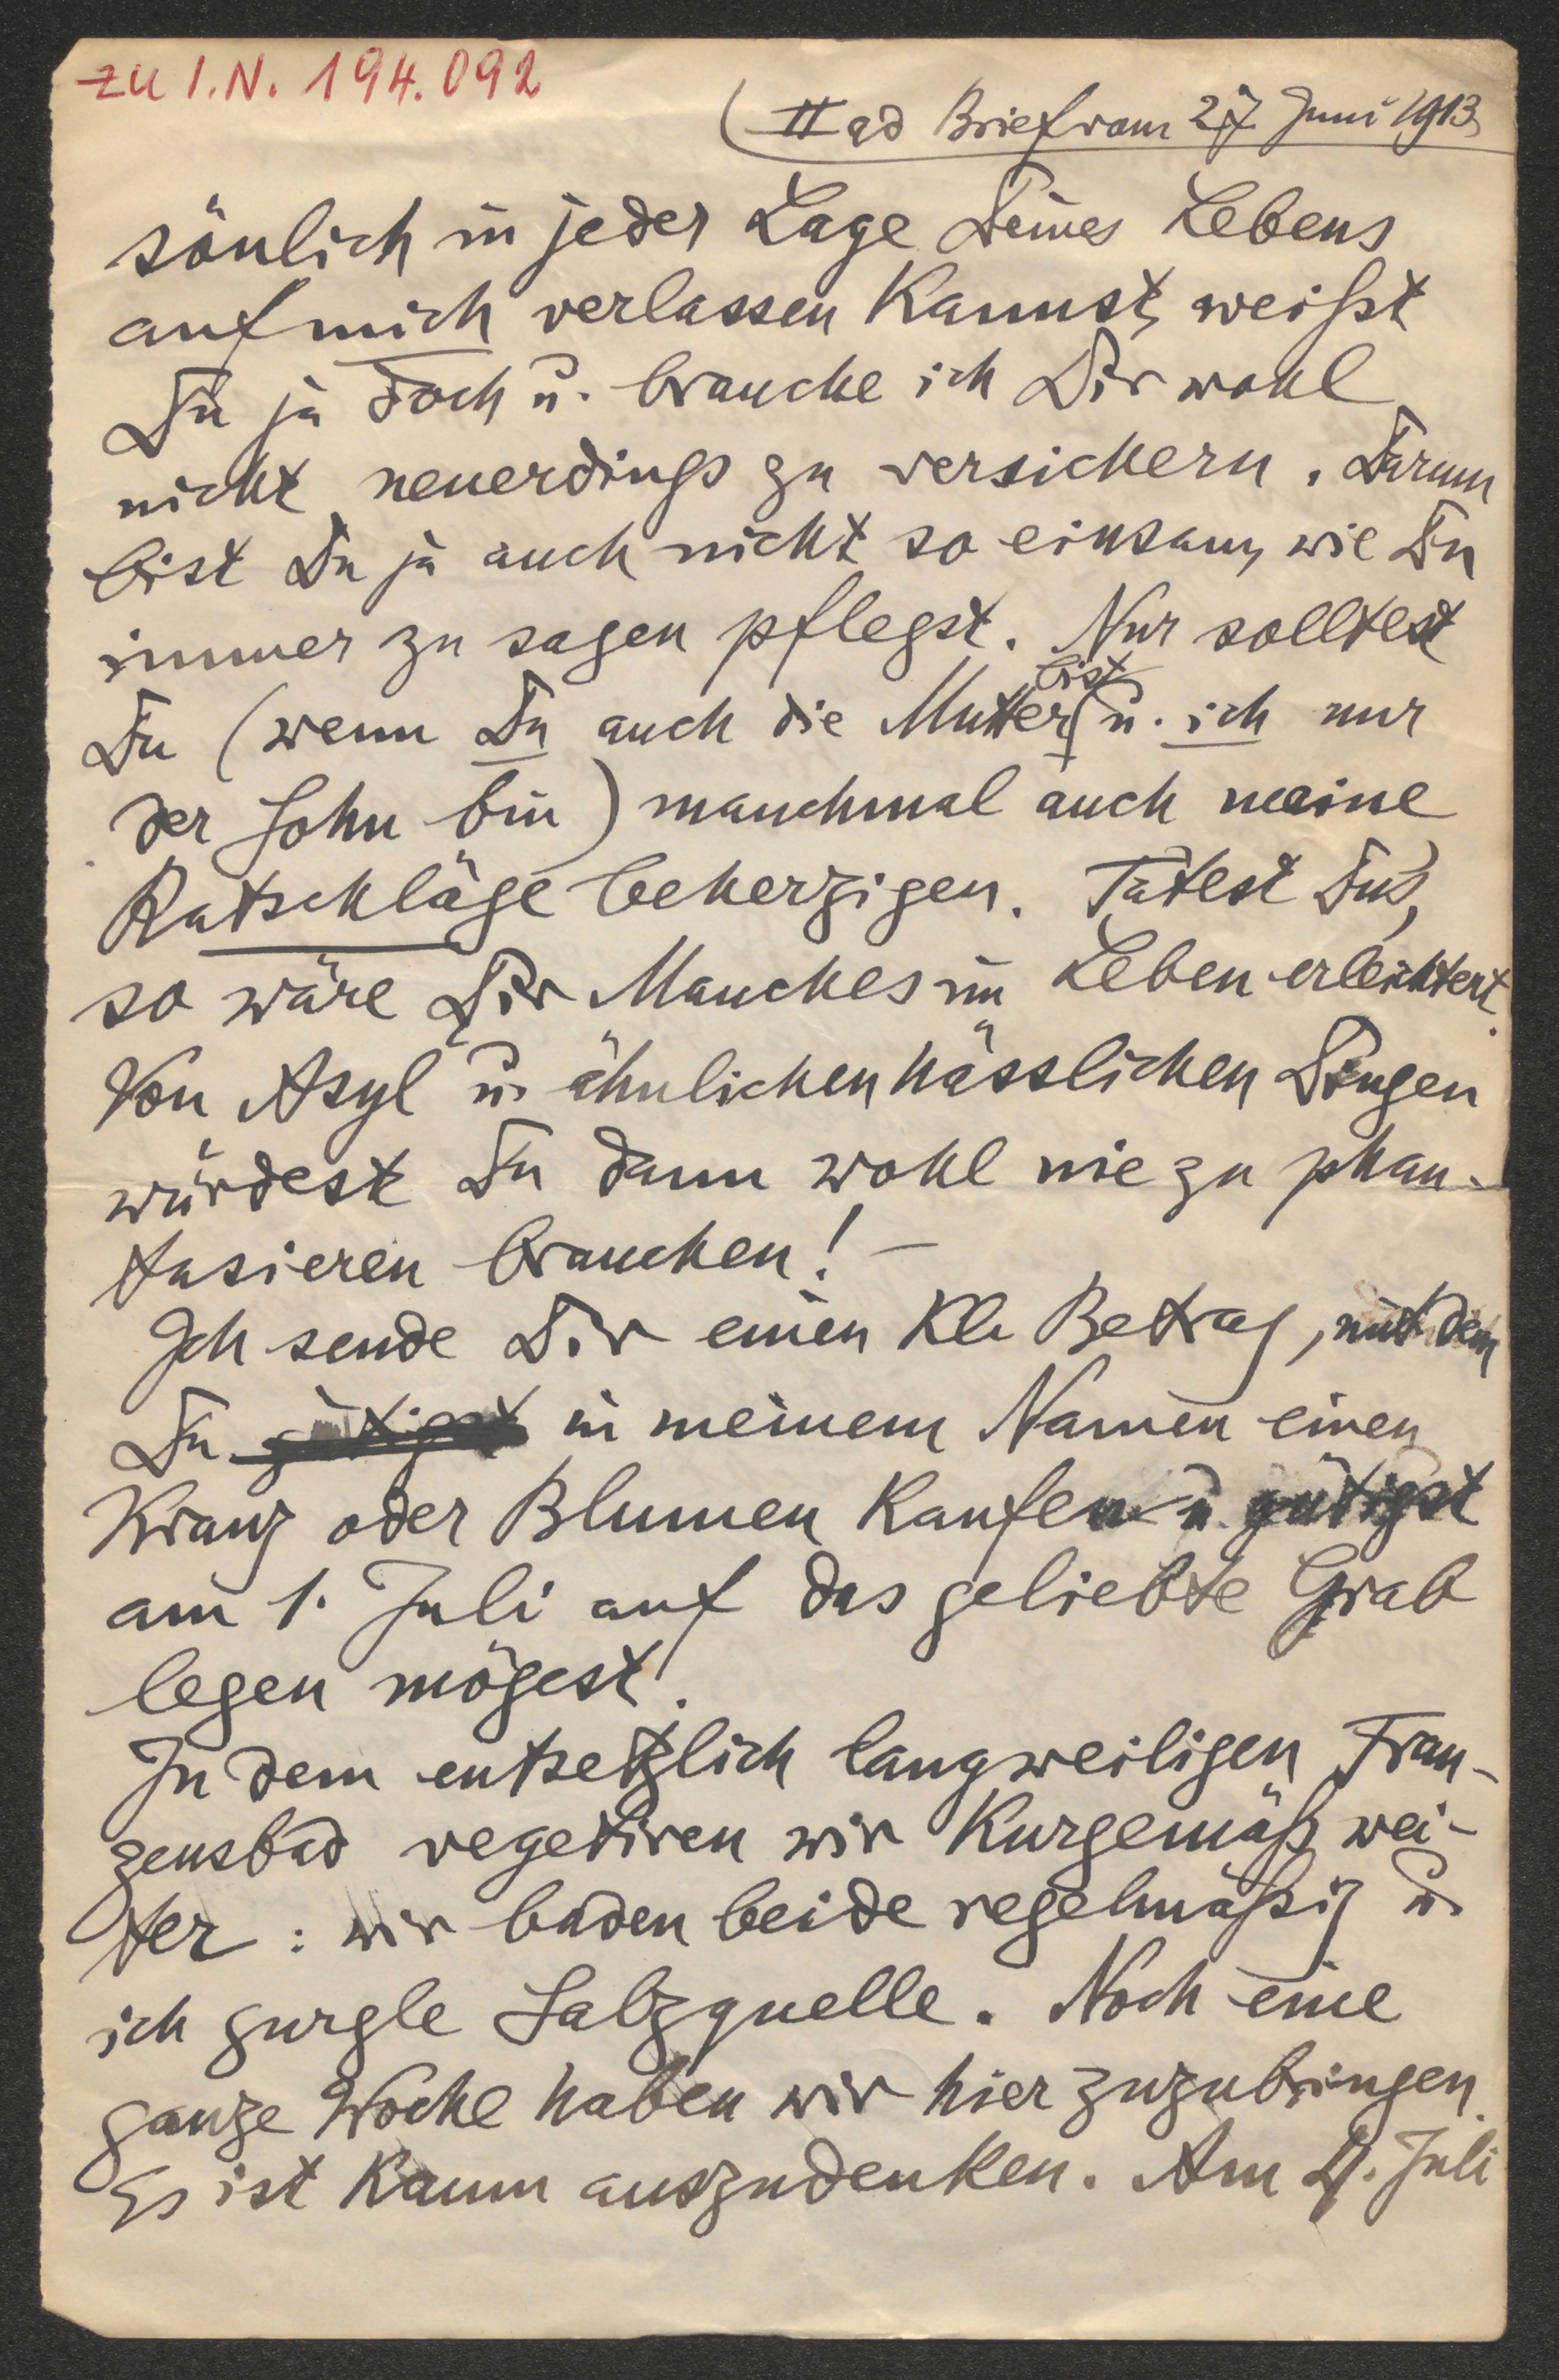 zu I.N. 194.092
(II ad Brief vom 27 Juni 1913
sönlich in jeder Lage Deines Lebens
auf mich verlassen kannst, weißt
Du ja doch u. brauche ich Dir wohl
nicht neuerdings zu versichern. Darum
bist Du ja auch nicht so einsam, wie Du
immer zu sagen pflegst. Nur solltest
bist
Du (wenn Du auch die Mutter u. ich nur
der Sohn bin) manchmal auch meine
Ratschläge beherzigen. Tätest Du's,
so wäre Dir Manches im Leben erleichtert.
Von Asyl u. ähnlichen hässlichen Dingen
würdest Du dann wohl nie zu phan-
tasieren brauchen! —
Ich sende Dir einen kl. Betrag, mit dem
Du gütigst in meinem Namen einen
Kranz oder Blumen kaufen u. gütigst
am 1. Juli auf das geliebte Grab
legen mögest.
In dem entsetzlich langweiligen Fran-
zensbad vegetiren wir kurgemäß wei-
ter: wir baden beide regelmäßig u.
ich gurgle Salzquelle. Noch eine
ganze Woche haben wir hier zuzubringen.
Es ist kaum auszudenken. Am 4. Juli